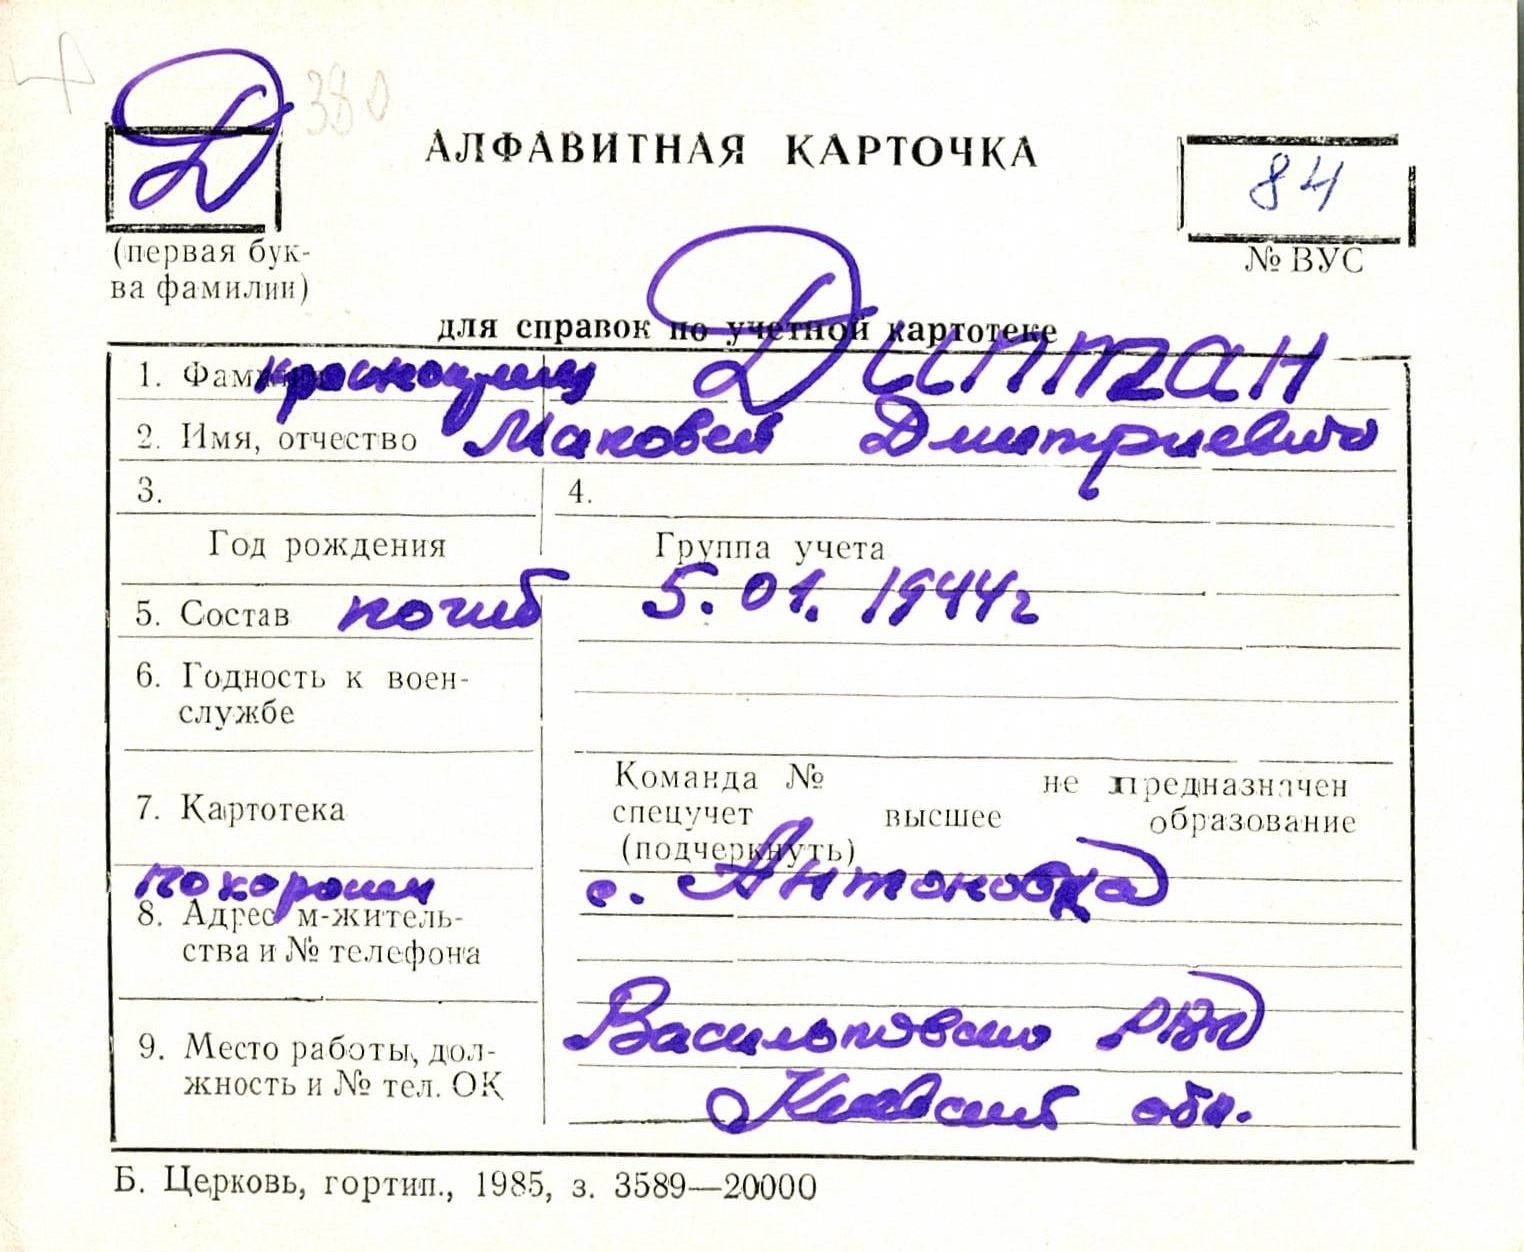 Д 380
АЛФАВИТНАЯ КАРТОЧКА
84
(первая бук-
ва фамилии)
№ ВУС
для справок по учетной картотеке
1. Фамилия Диптан
2. Имя, отчество Маковей Дмитриевич
3. 4.
Год рождения Группа учета
5. Состав погиб 5.01.1944г
6. Годность к воен-
службе
Команда № не предназначен
7. Картотека спецучет высшее образование
(подчеркнуть)
похоронен с. Антоновка
8. Адрес м-житель-
ства и № телефона
Васильковского р-на
9. Место работы, дол-
жность и № тел. ОК
Киевской обл.
Б. Церковь, гортип., 1985, з. 3589—20000